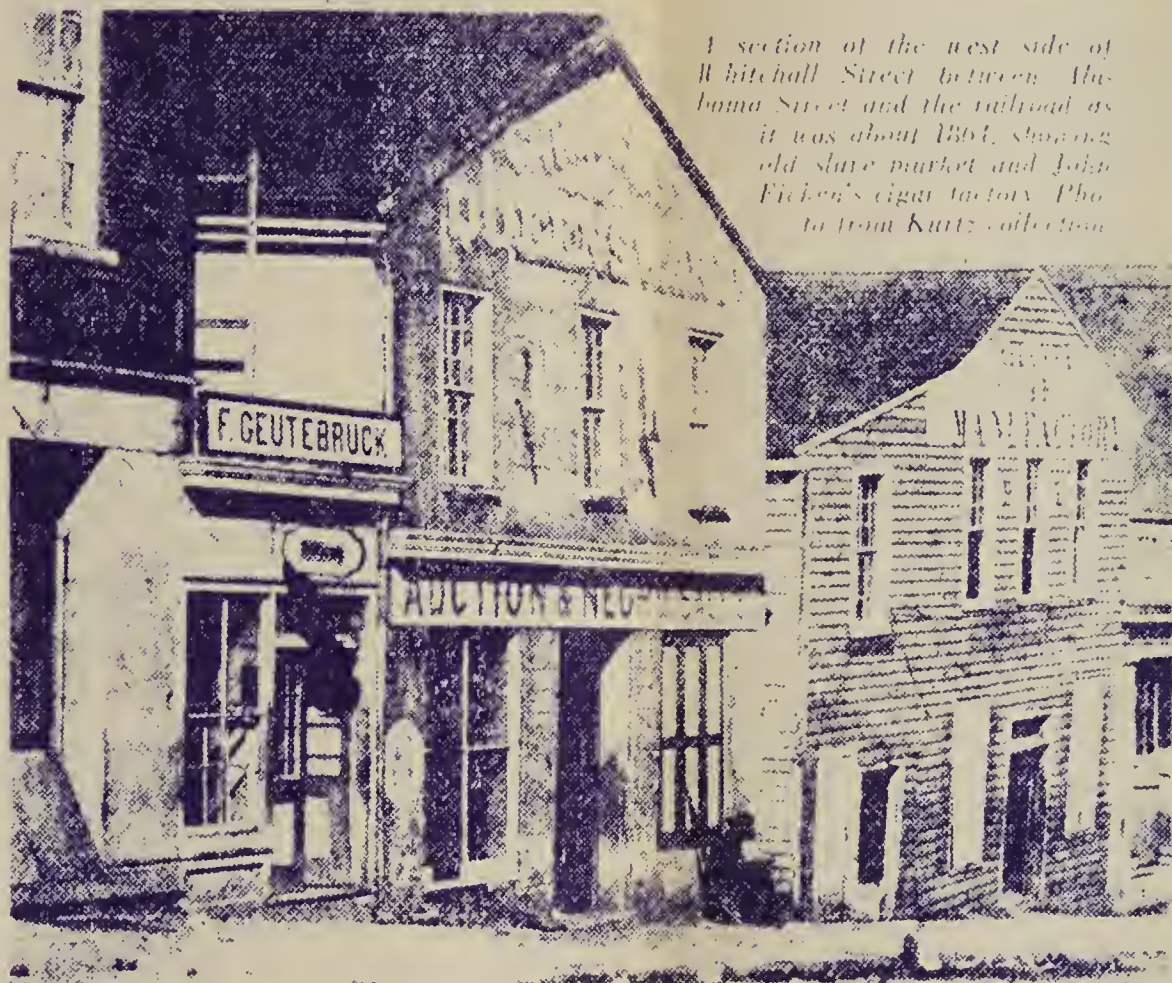 A section of the west side of
Whitehall Street between Ala-
bama Street and the railroad as
it was about 1864, showing
old slave market and John
Ficken's cigar factory. Pho-
to from Kurtz collection
F. GEUTEBRUCK
AUCTION & NEG
MANUFACTORY